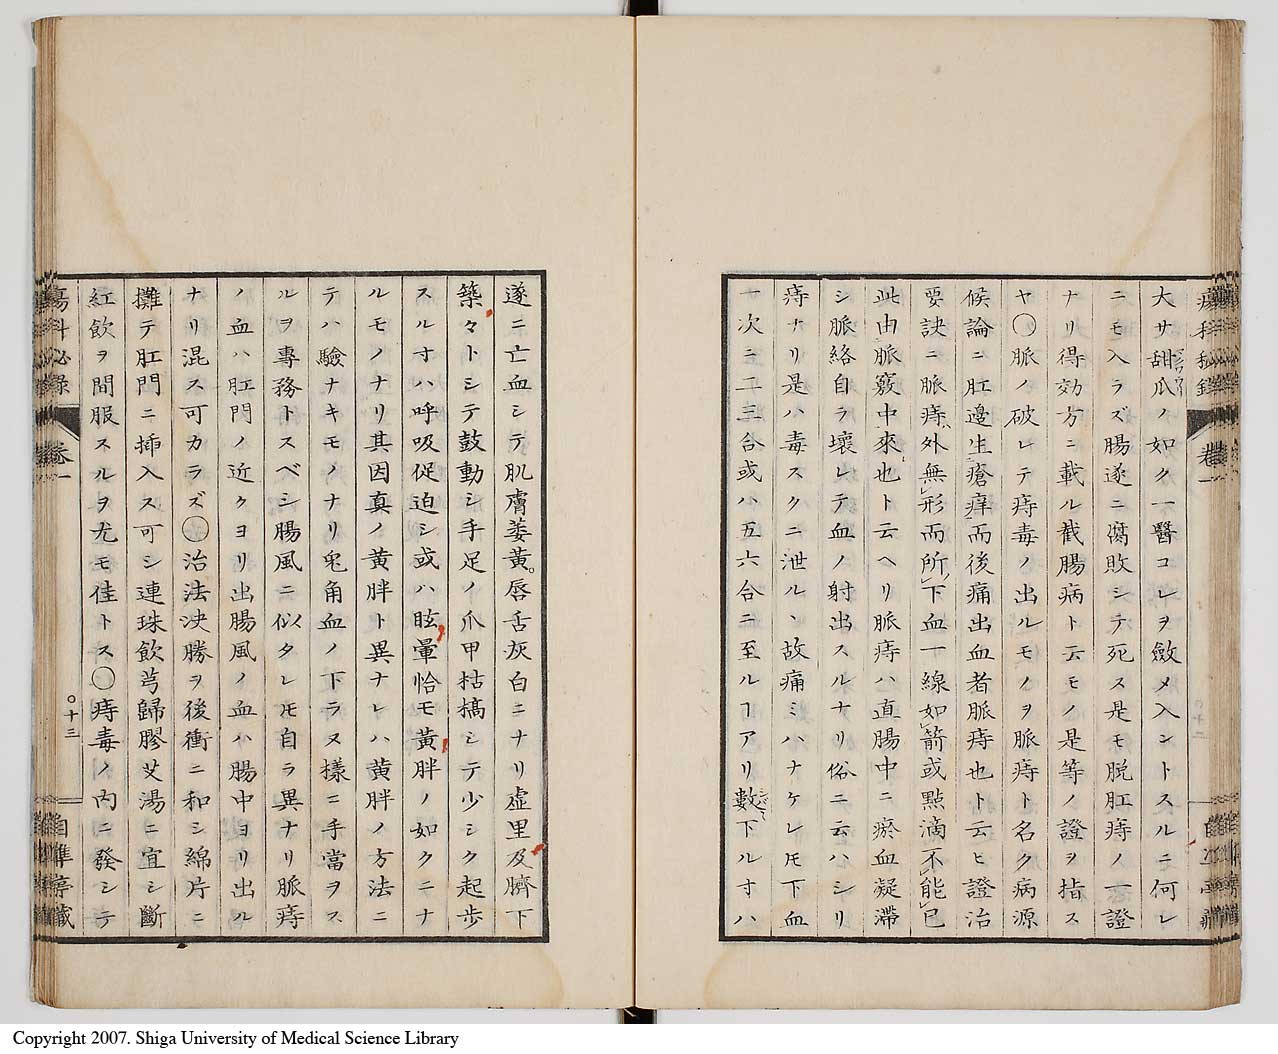 大サ甜瓜ノ如ク一醫コレヲ斂メ入ントスルニ何レ
ニモ入ラズ腸遂ニ腐敗シテ死ス是モ脱肛痔ノ一證
ナリ得効方ニ載ル截腸病ト云モノ是等ノ證ヲ指ス
ヤ〇脈ノ破レテ痔毒ノ出ルモノヲ脈痔ト名ク病源
候論ニ肛邊生瘡痒而後痛出血者脈痔也ト云ヒ證治
要訣ニ脈痔外無形而所下血一線如箭或點滴不能已
此由脈竅中來也ト云ヘリ脈痔ハ直腸中ニ瘀血凝滯
シ脈絡自ラ壞レテ血ノ射出スルナリ俗ニ云ハシリ
痔ナリ是ハ毒スクニ泄ルヽ故痛ミハナケレ𪜈下血
一次ニ二三合或ハ五六合ニ至ルヿアリ數下ルオハ
遂ニ亡血シテ肌膚萎黄。唇舌灰白ニナリ虚里及臍下
築々トシテ鼓動シ手足ノ爪甲枯槁シテ少シク起歩
スルオハ呼吸促迫シ或ハ眩暈恰モ黄胖ノ如クニナ
ルモノナリ其因真ノ黄胖ト異ナレハ黄胖ノ方法ニ
テハ驗ナキモノナリ兎角血ノ下ラヌ様ニ手當ヲス
ルヲ專務トスベシ腸風ニ似タレ𪜈自ラ異ナリ脈痔
ノ血ハ肛門ノ近クヨリ出腸風ノ血ハ腸中ヨリ出ル
ナリ混ス可カラズ〇治法決勝ヲ後衝ニ和シ綿片ニ
攤テ肛門ニ挿入ス可シ連珠飲芎歸膠艾湯ニ宜シ斷
紅飲ヲ間服スルヲ尤モ佳トス〇痔毒ノ内ニ發シテ
瘍科秘録
卷一
〇十三
自準亭藏
Copyright 2007. Shiga University of Medical Science Library